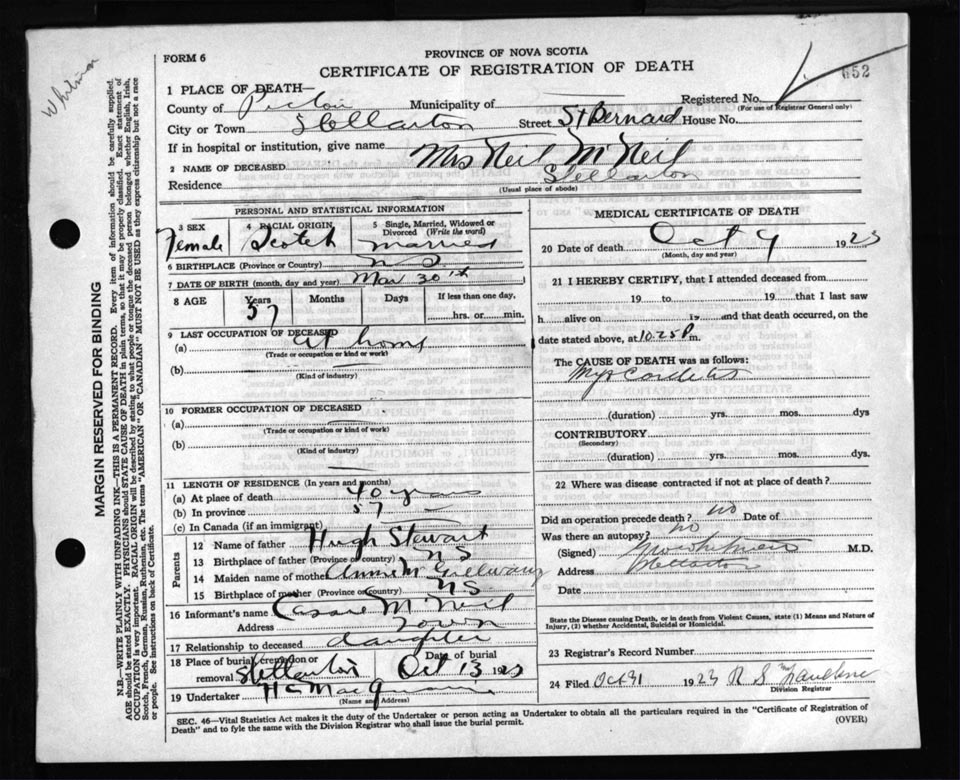 Whitman
FORM 6
PROVINCE OF NOVA SCOTIA
CERTIFICATE OF REGISTRATION OF DEATH
652
1 PLACE OF DEATH—
County of Pictou Municipality of Registered No.
(For use of Registrar General only)
City or Town Stellarton Street St Bernard House No.
If in hospital or institution, give name
2 NAME OF DECEASED Mrs Neil McNeil
Residence Stellarton
(Usual place of abode)
PERSONAL AND STATISTICAL INFORMATION
3 SEX 4 RACIAL ORIGIN 5 Single, Married, Widowed or Divorced (Write the word)
Female Scotch Married
6 BIRTHPLACE (Province or Country) N S
7 DATE OF BIRTH (month, day and year) Mar 30th
8 AGE Years Months Days If less than one day,
57 hrs. or min.
9 LAST OCCUPATION OF DECEASED
(a) At home
(Trade or occupation or kind or work)
(b)
(Kind of industry)
10 FORMER OCCUPATION OF DECEASED
(a)
(Trade or occupation or kind of work)
(b)
(Kind of industry)
11 LENGTH OF RESIDENCE (In years and months)
(a) At place of death 40 years
(b) In province 57
(c) In Canada (if an immigrant)
Parents
12 Name of father Hugh Stewart
13 Birthplace of father (Province or country) N S
14 Maiden name of mother Annie
15 Birthplace of mother (Province or Country) N S
16 Informant's name McNeil
Address Town
17 Relationship to deceased daughter
18 Place of burial, cremation or removal Stellarton Date of burial Oct 13 1923
19 Undertaker
(Name and Address)
MEDICAL CERTIFICATE OF DEATH
20 Date of death Oct 9 1923
(Month, day and year)
21 I HEREBY CERTIFY, that I attended deceased from
19 to 19 that I last saw
h alive on 19 and that death occurred, on
date stated above, at 10.25 P. m.
The CAUSE OF DEATH was as follows:
Myocarditis
(duration) yrs. mos. dys
CONTRIBUTORY
(Secondary)
(duration) yrs. mos. dys.
22 Where was disease contracted if not at place of death?
Did an operation precede death? No Date of
Was there an autopsy? No
(Signed) Whitman M.D.
Address Stellarton
Date
State the Disease causing Death, or in death from Violent Causes, state (1) Means and Nature of Injury, (2) whether Accidental, Suicidal or Homicidal.
23 Registrar's Record Number
24 Filed Oct 31 1923 R S
Division Registrar
SEC. 46—Vital Statistics Act makes it the duty of the Undertaker or person acting as Undertaker to obtain all the particulars required in the "Certificate of Registration of
Death" and to fyle the same with the Division Registrar who shall issue the burial permit.
(OVER)
MARGIN RESERVED FOR BINDING
N.B.—WRITE PLAINLY WITH UNFADING INK—THIS IS A PERMANENT RECORD. Every item of information should be carefully supplied.
AGE should be stated EXACTLY. PHYSICIANS should STATE CAUSE OF DEATH in plain terms, so that it may be properly classified. Exact statement of
OCCUPATION is very important. RACIAL ORIGIN will be described by stating to what people or tongue the deceased person belonged, whether English, Irish,
Scotch, French, German, Russian, Ruthenian, etc. The terms "AMERICAN" OR "CANADIAN" MUST NOT BE USED as they express citizenship but not a race
or people. See instructions on back of Certificate.